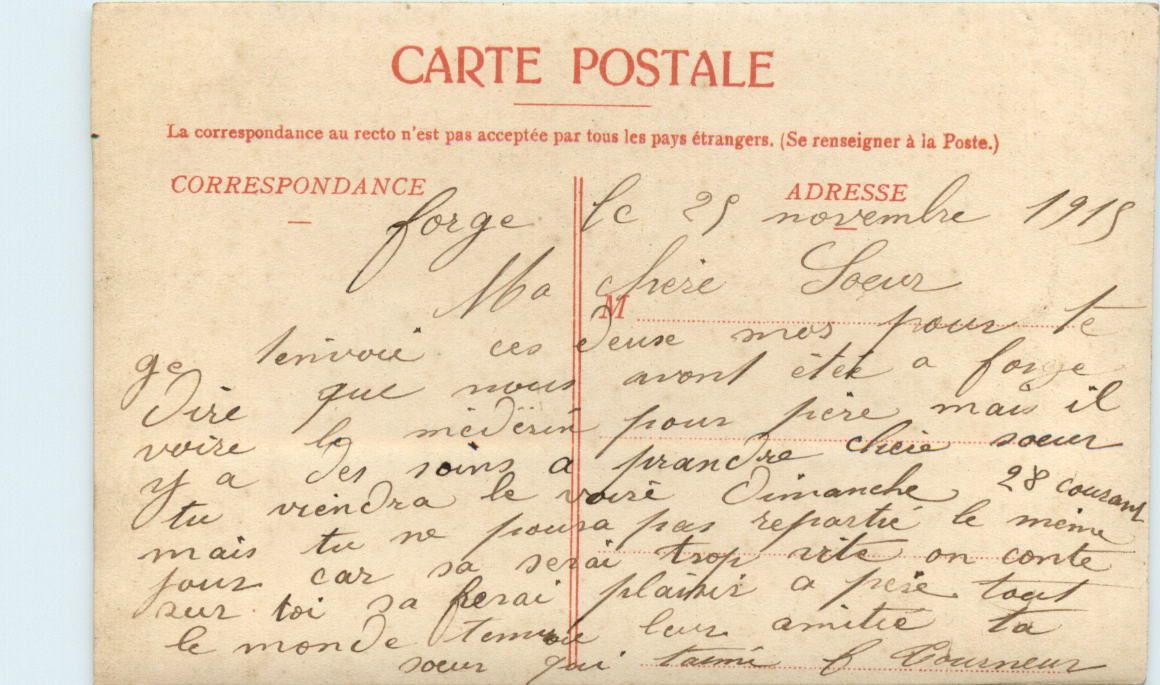 CARTE POSTALE
La correspondance au recto n'est pas acceptée par tous les pays étrangers. (Se renseigner à la Poste.)
CORRESPONDANCE
ADRESSE
forge le 25 novembre 1915
Ma chère Soeur
M
ge tenvoie ces deux mos pour te
dire que nous avont étéé a forge
voire le médecin pour père mais il
y a des soins a prandre chère soeur
tu viendra le voire Dimanche 28 courant
mais tu ne poura pas repartié le même
jour car sa serai trop vite on conte
sur toi sa ferai plaisir a père tout
le monde tenvoie leur amitié ta
soeur qui taime